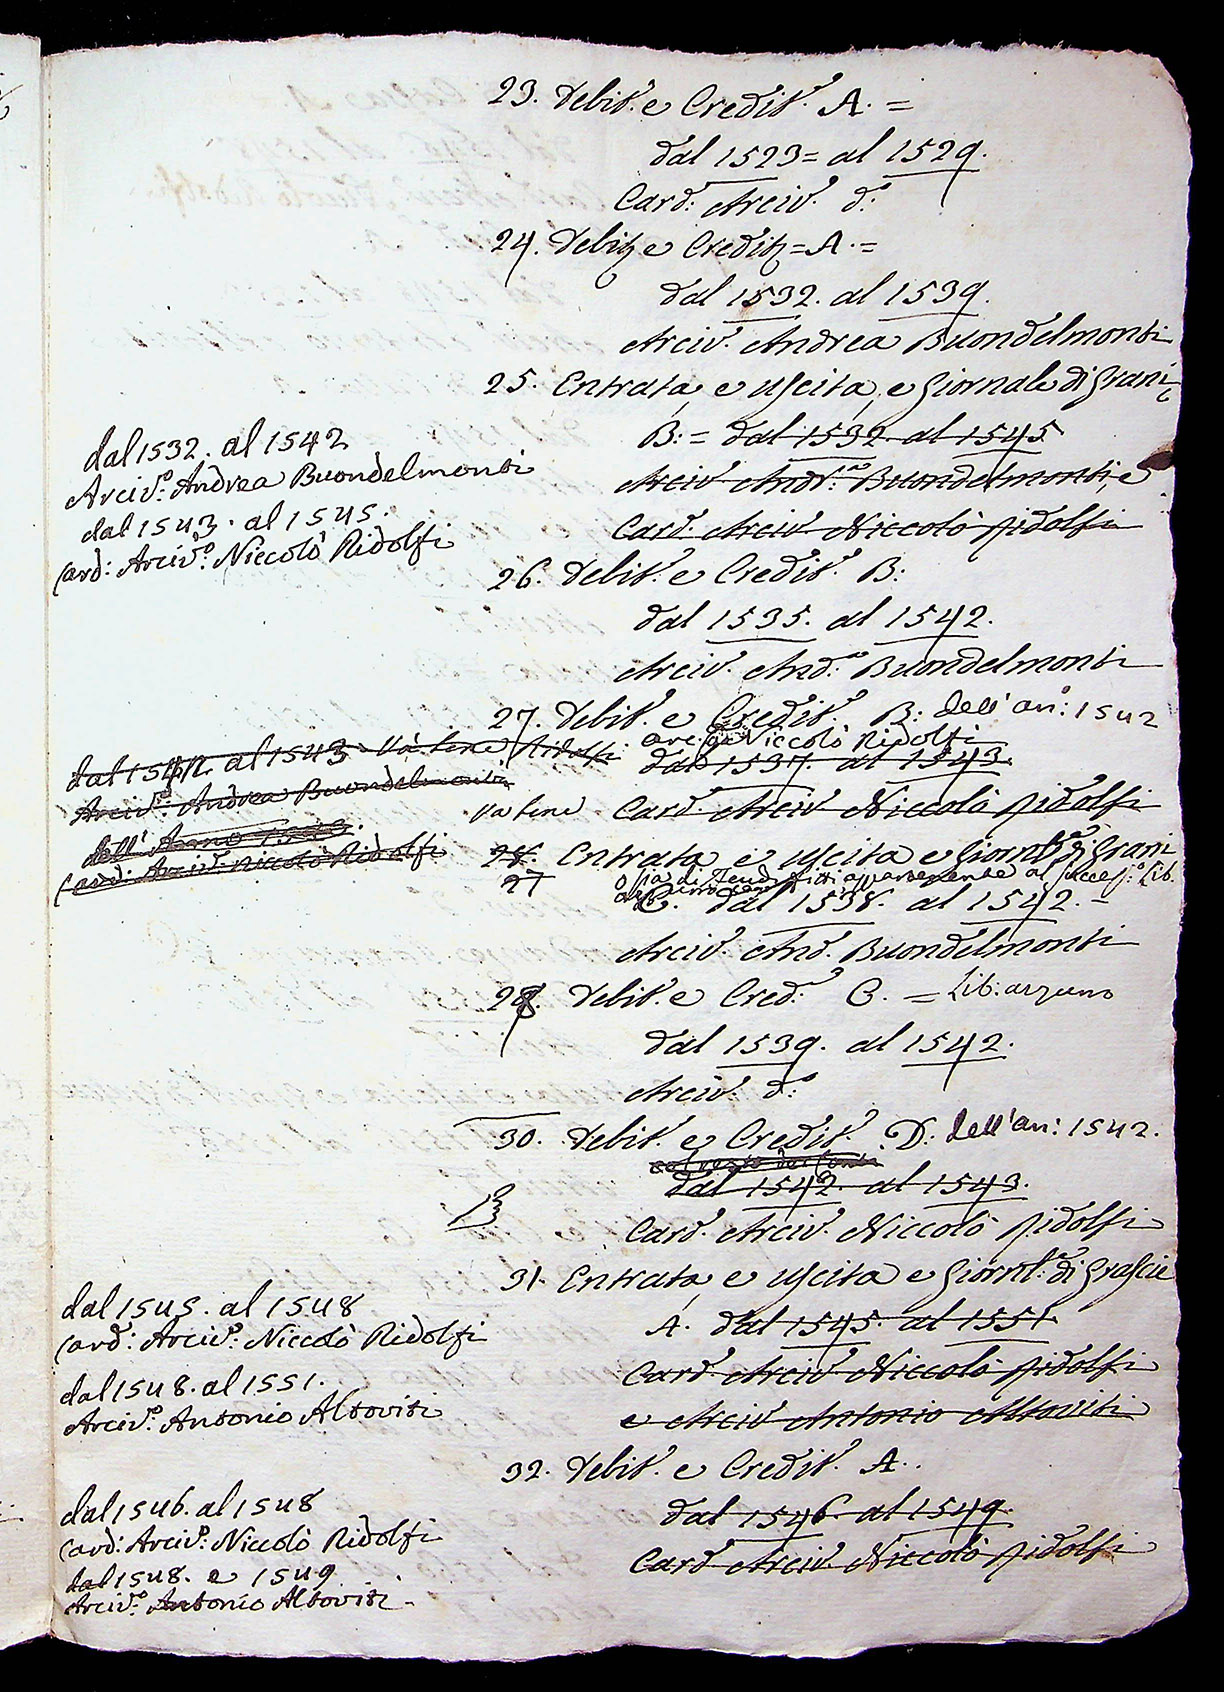 23. Debit.ᵉ e Credit.ᵉ A. =
dal 1523 = al 1529.
Card: Arciv. d:º
24. Debitᵢ e Creditᵢ = A. =
dal 1532. al 1539.
Arciv. Andrea Buondelmonti
25. Entrata, e Uscita, e Giornale di Grani
B: = dal 1532. al 1545
Arciv Andr:ª Buondelmonti, e
Card. Arciv Niccolò Ridolfi
dal 1532. al 1542
Arciv:º Andrea Buondelmonti
dal 1543. al 1545.
Card: Arciv:º Niccolò Ridolfi
26. Debit. e Credit. B:
dal 1535. al 1542.
Arciv. And:ª Buondelmonti
27. Debit. e Credit. B: dell' an: 1542
Niccolò Ridolfi
dal 1537. al 1543.
Card. Arciv Niccolò Ridolfi
dal 1542. al 1543 Và bene Ridolfi
Arciv:º Andrea Buondelmonti
Va bene
dell' Anno 1543.
Card: Arciv:º Niccolò Ridolfi
28. Entrata e Uscita e Giornl di Grani
27
appartenente al success:º Lib.
C. dal 1538. al 1542. -
Arciv. And. Buondelmonti
28. Debit. e Cred: C. = Lib:
dal 1539. al 1542.
Arciv. d:º
30. Debit. e Credit. D: dell' an: 1542.
dal 1542. al 1543.
Card. Arciv. Niccolò Ridolfi
31. Entrata, e Uscita e Giornl:ᵉ di Grascie
A. dal 1545. al 1551.
Card Arciv Niccolò Ridolfi
e Arciv Antonio Altoviti
dal 1545. al 1548
Card: Arciv:º Niccolò Ridolfi
dal 1548. al 1551.
Arciv:º Antonio Altoviti
32. Debit. e Credit. A..
dal 1546. al 1549.
Card Arciv Niccolò Ridolfi
dal 1546. al 1548
Card: Arciv:º Niccolò Ridolfi
dal 1548. e 1549
Arciv:º Antonio Altoviti -